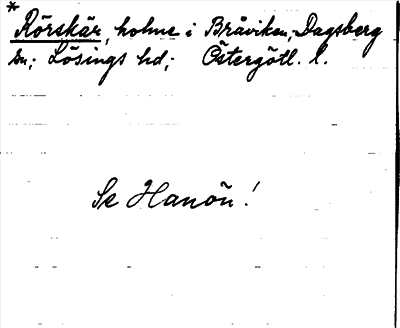 * Rörskär, holme i Bråviken, Dagsberg
sn; Lösings hd; Östergötl. l.
Se Hanön!